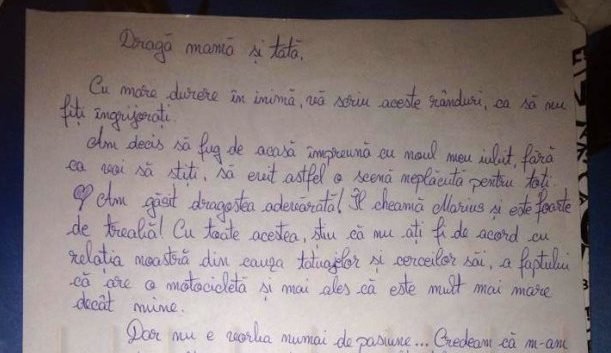 Dragă mamă și tată,
Cu mare durere în inimă, vă scriu aceste rânduri, ca să nu
fiți îngrijorați.
Am decis să fug de acasă împreună cu noul meu iubit, fără
ca voi să știți, să evit astfel o scenă neplăcută pentru toți.
Am găsit dragostea adevărată! Îl cheamă Marius și este foarte
de treabă! Cu toate acestea, știu că nu ați fi de acord cu
relația noastră din cauza tatuajelor si cerceilor săi, a faptului
că are o motocicletă și mai ales că este mult mai mare
decât mine.
Dar nu e vorba numai de pasiune... Credeam că m-am